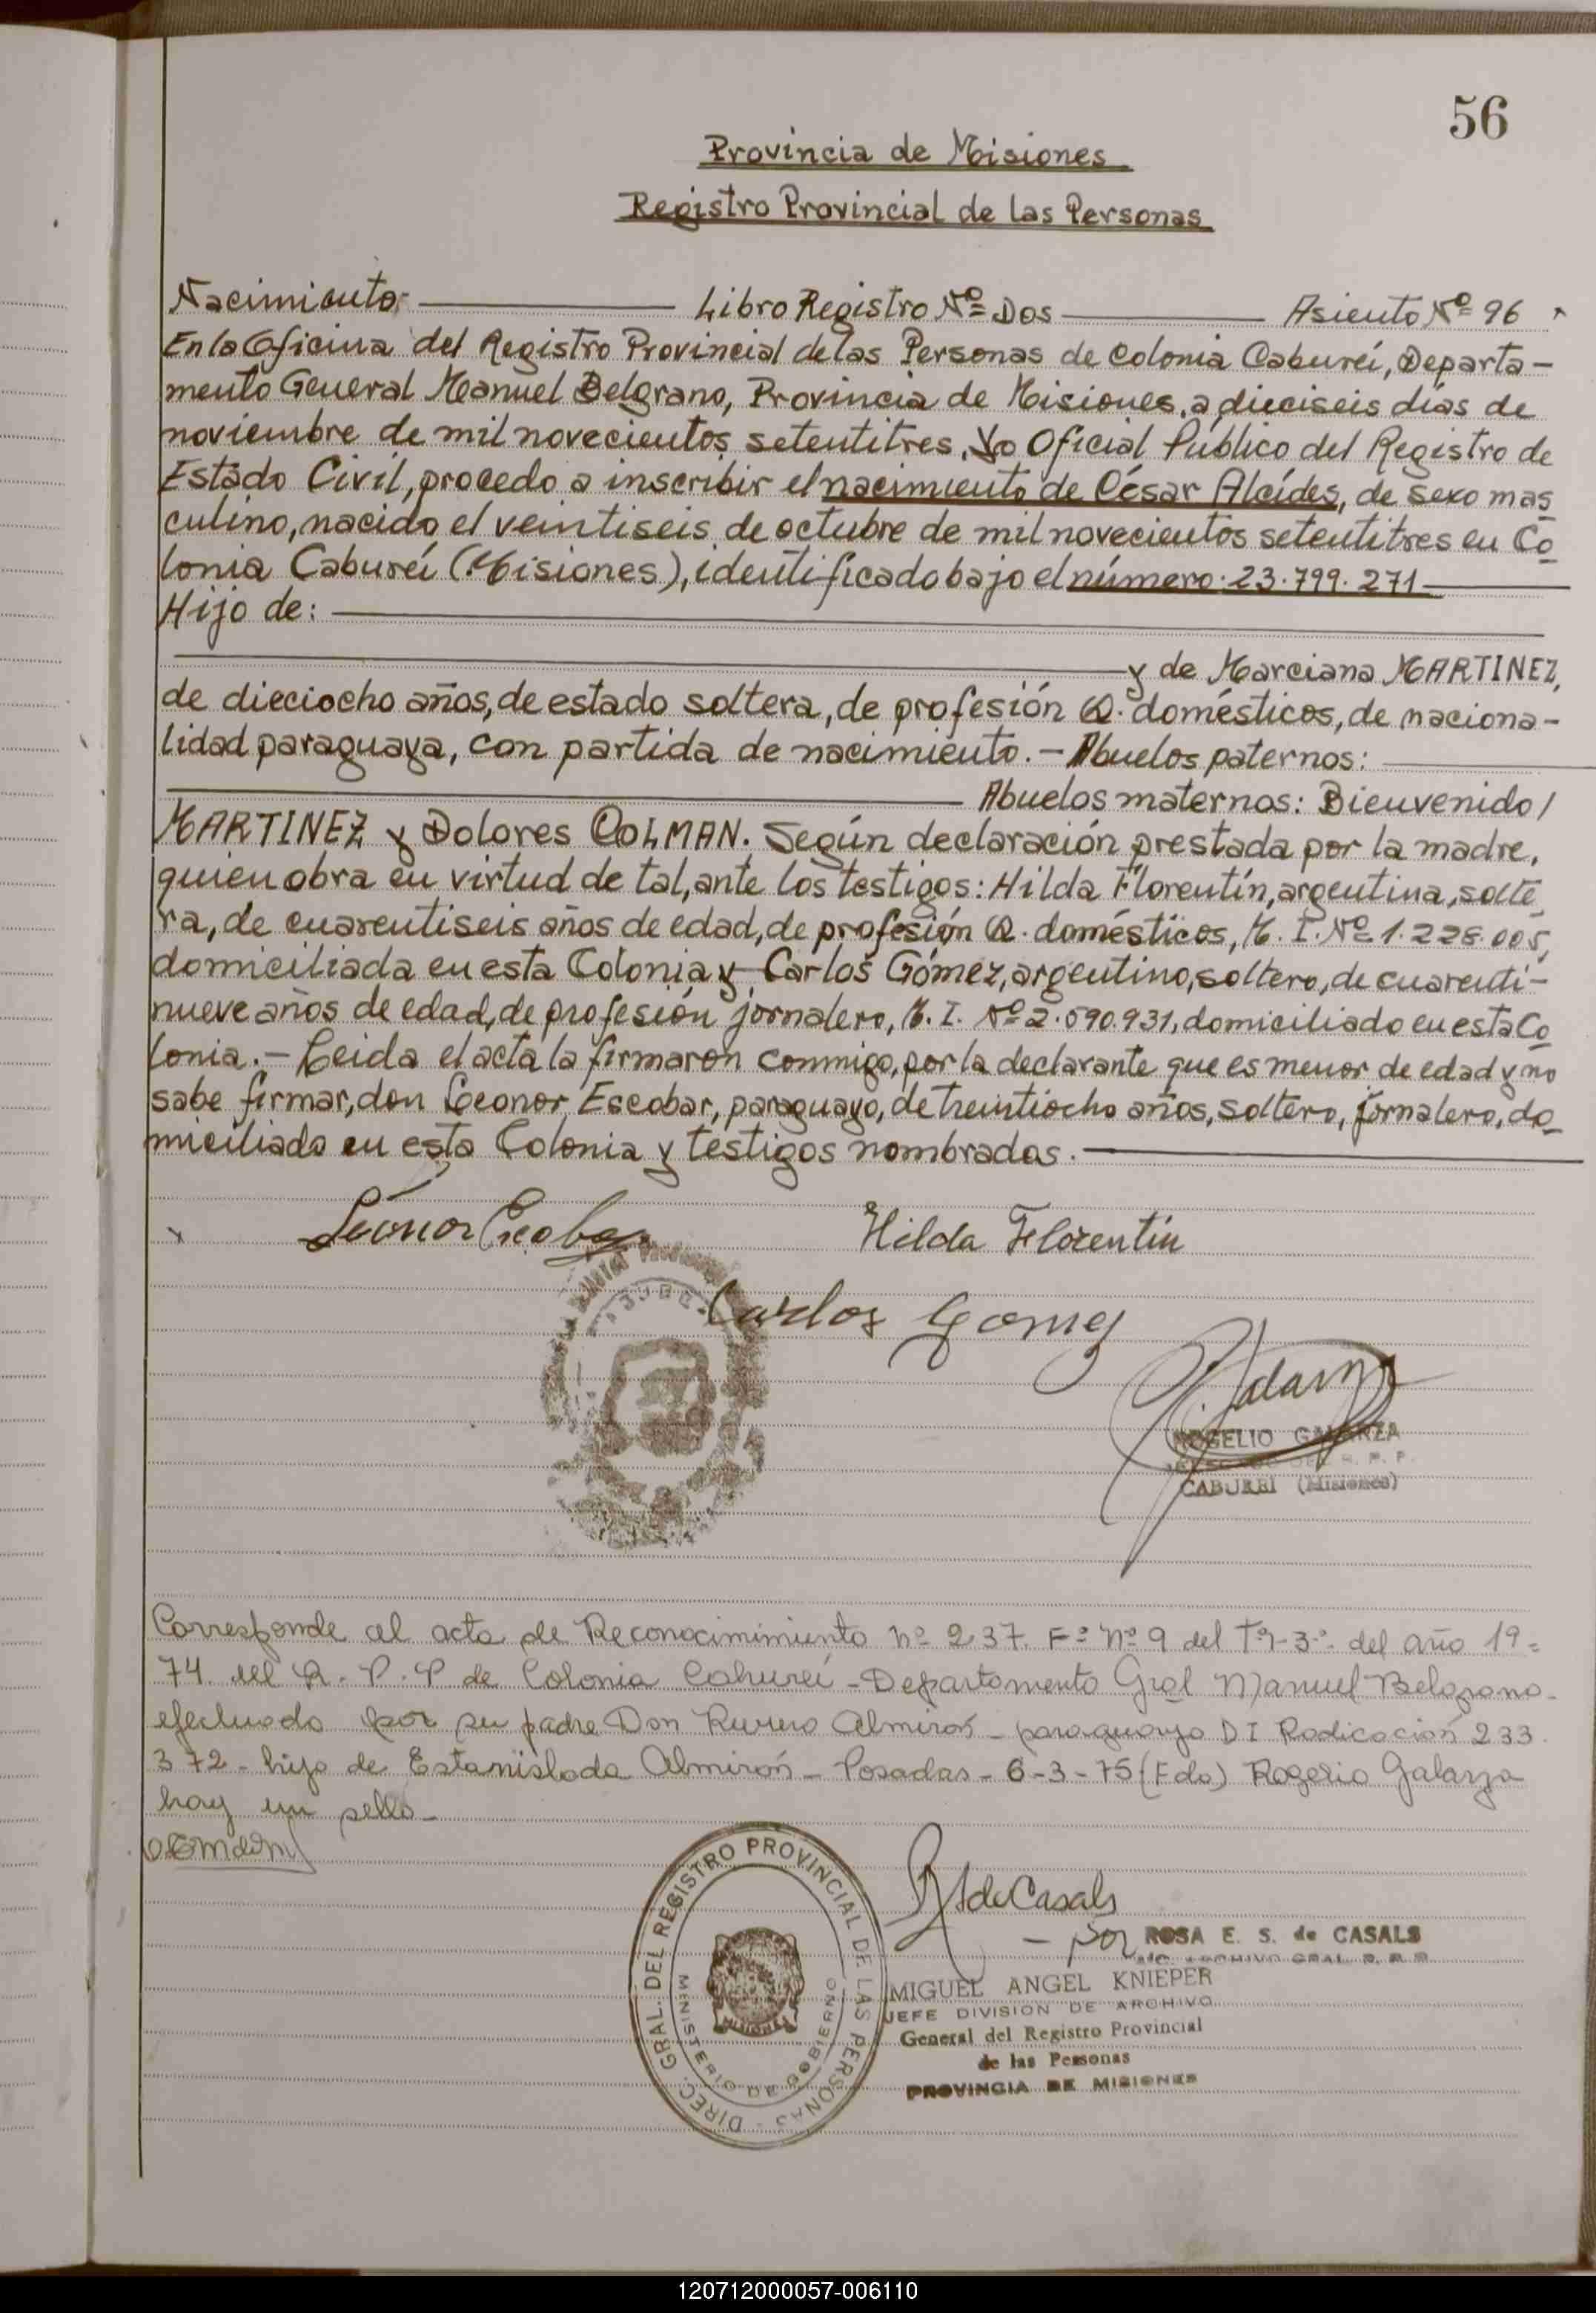 56
Provincia de Misiones
Registro Provincial de las Personas
Nacimiento Libro Registro Nº Dos Asiento Nº 96
En la Oficina del Registro Provincial de las Personas de Colonia Cabureí, Departa-
mento General Manuel Belgrano, Provincia de Misiones, a dieciseis días de
noviembre de mil novecientos setentitres, Yo Oficial Público del Registro de
Estado Civil, procedo a inscribir el nacimiento de César Alcídes, de sexo mas
culino, nacido el veintiseis de octubre de mil novecientos setentitres en Co
lonia Cabureí (Misiones), identificado bajo el número: 23.799.271
Hijo de:
y de Marciana MARTINEZ,
de dieciocho años, de estado soltera, de profesión Q. domésticos, de naciona-
lidad paraguaya, con partida de nacimiento. - Abuelos paternos:
Abuelos maternos: Bienvenido /
MARTINEZ y Dolores COLMAN. Según declaración prestada por la madre,
quien obra en virtud de tal, ante los testigos: Hilda Florentín, argentina, solte
ra, de cuarentiseis años de edad, de profesión Q. domésticos, M. I. Nº 1.228.005,
domiciliada en esta Colonia y Carlos Gómez, argentino, soltero, de cuarenti-
nueve años de edad, de profesión jornalero, M. I. Nº 2.090.931, domiciliado en esta Co
lonia. - Leida el acta la firmaron conmigo, por la declarante que es menor de edad y no
sabe firmar, don Leonor Escobar, paraguayo, de treintiocho años, soltero, jornalero, do
miciliado en esta Colonia y testigos nombrados.
Leonor Escobar Hilda Florentín
Carlos Gomez
ROGELIO GALARZA
R. P. P.
CABUREI (Misiones)
Corresponde al acta de Reconocimimiento nº 237 Fº nº 9 del Tº - 3º del año 19=
74 del R. P. P de Colonia Cabureí - Departamento Gral Manuel Belgrano -
efectuado por su padre Don Almirón - paraguayo D I Radicación 233.
372 - hijo de Estanislada Almirón - Posadas - 6-3-75 (Fdo) Rogerio Galarza
hay un sello -
DIREC. GRAL. DEL REGISTRO PROVINCIAL DE LAS PERSONAS -
MINISTERIO DE GOBIERNO
MISIONES
de Casals
- por ROSA E. S. de CASALS
A/C. ARCHIVO GRAL R. P. P.
MIGUEL ANGEL KNIEPER
JEFE DIVISION DE ARCHIVO
General del Registro Provincial
de las Personas
PROVINCIA DE MISIONES
120712000057-006110